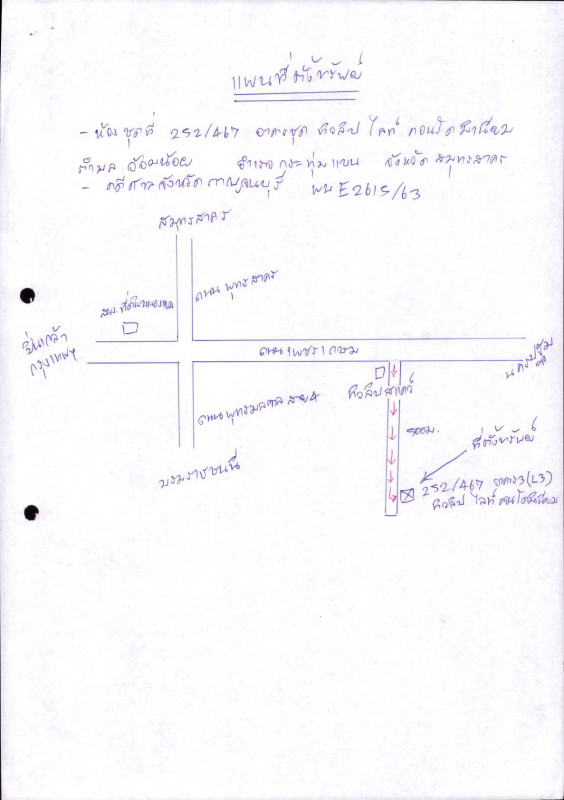 แผนที่ตั้งทรัพย์
- ห้องชุดที่ 252/467 อาคารชุด ทิวลิป ไลท์ คอนโดมิเนียม
ตำบล อ้อมน้อย อำเภอ กระทุ่มแบน จังหวัด สมุทรสาคร
- คดีศาลจังหวัดกาญจนบุรี ผบE2615/63
สมุทรสาคร
ถนน พุทธสาคร
ปิ่นเกล้า
กรุงเทพฯ
ถนนเพชรเกษม
นครปฐม
ทิวลิปสแควร์
ถนนพุทธมณฑลสาย4
500ม.
ที่ตั้งทรัพย์
บรมราชชนนี
252/467 อาคาร3(L3)
ทิวลิป ไลท์ คอนโดมิเนียม